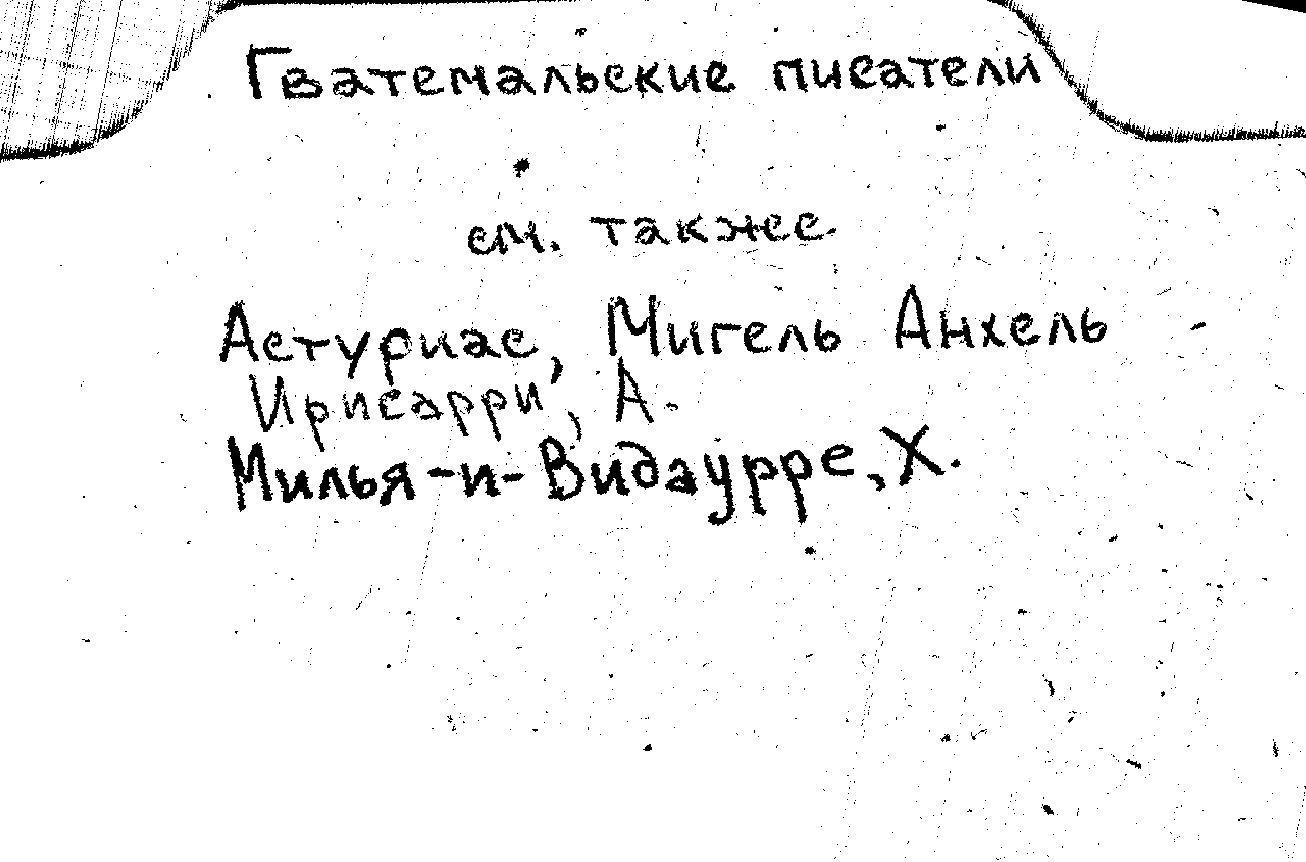 Гватемальские писатели
см. также
Астуриас, Мигель Анхель
Ирисарри, А.
Милья-и-Видаурре, Х.